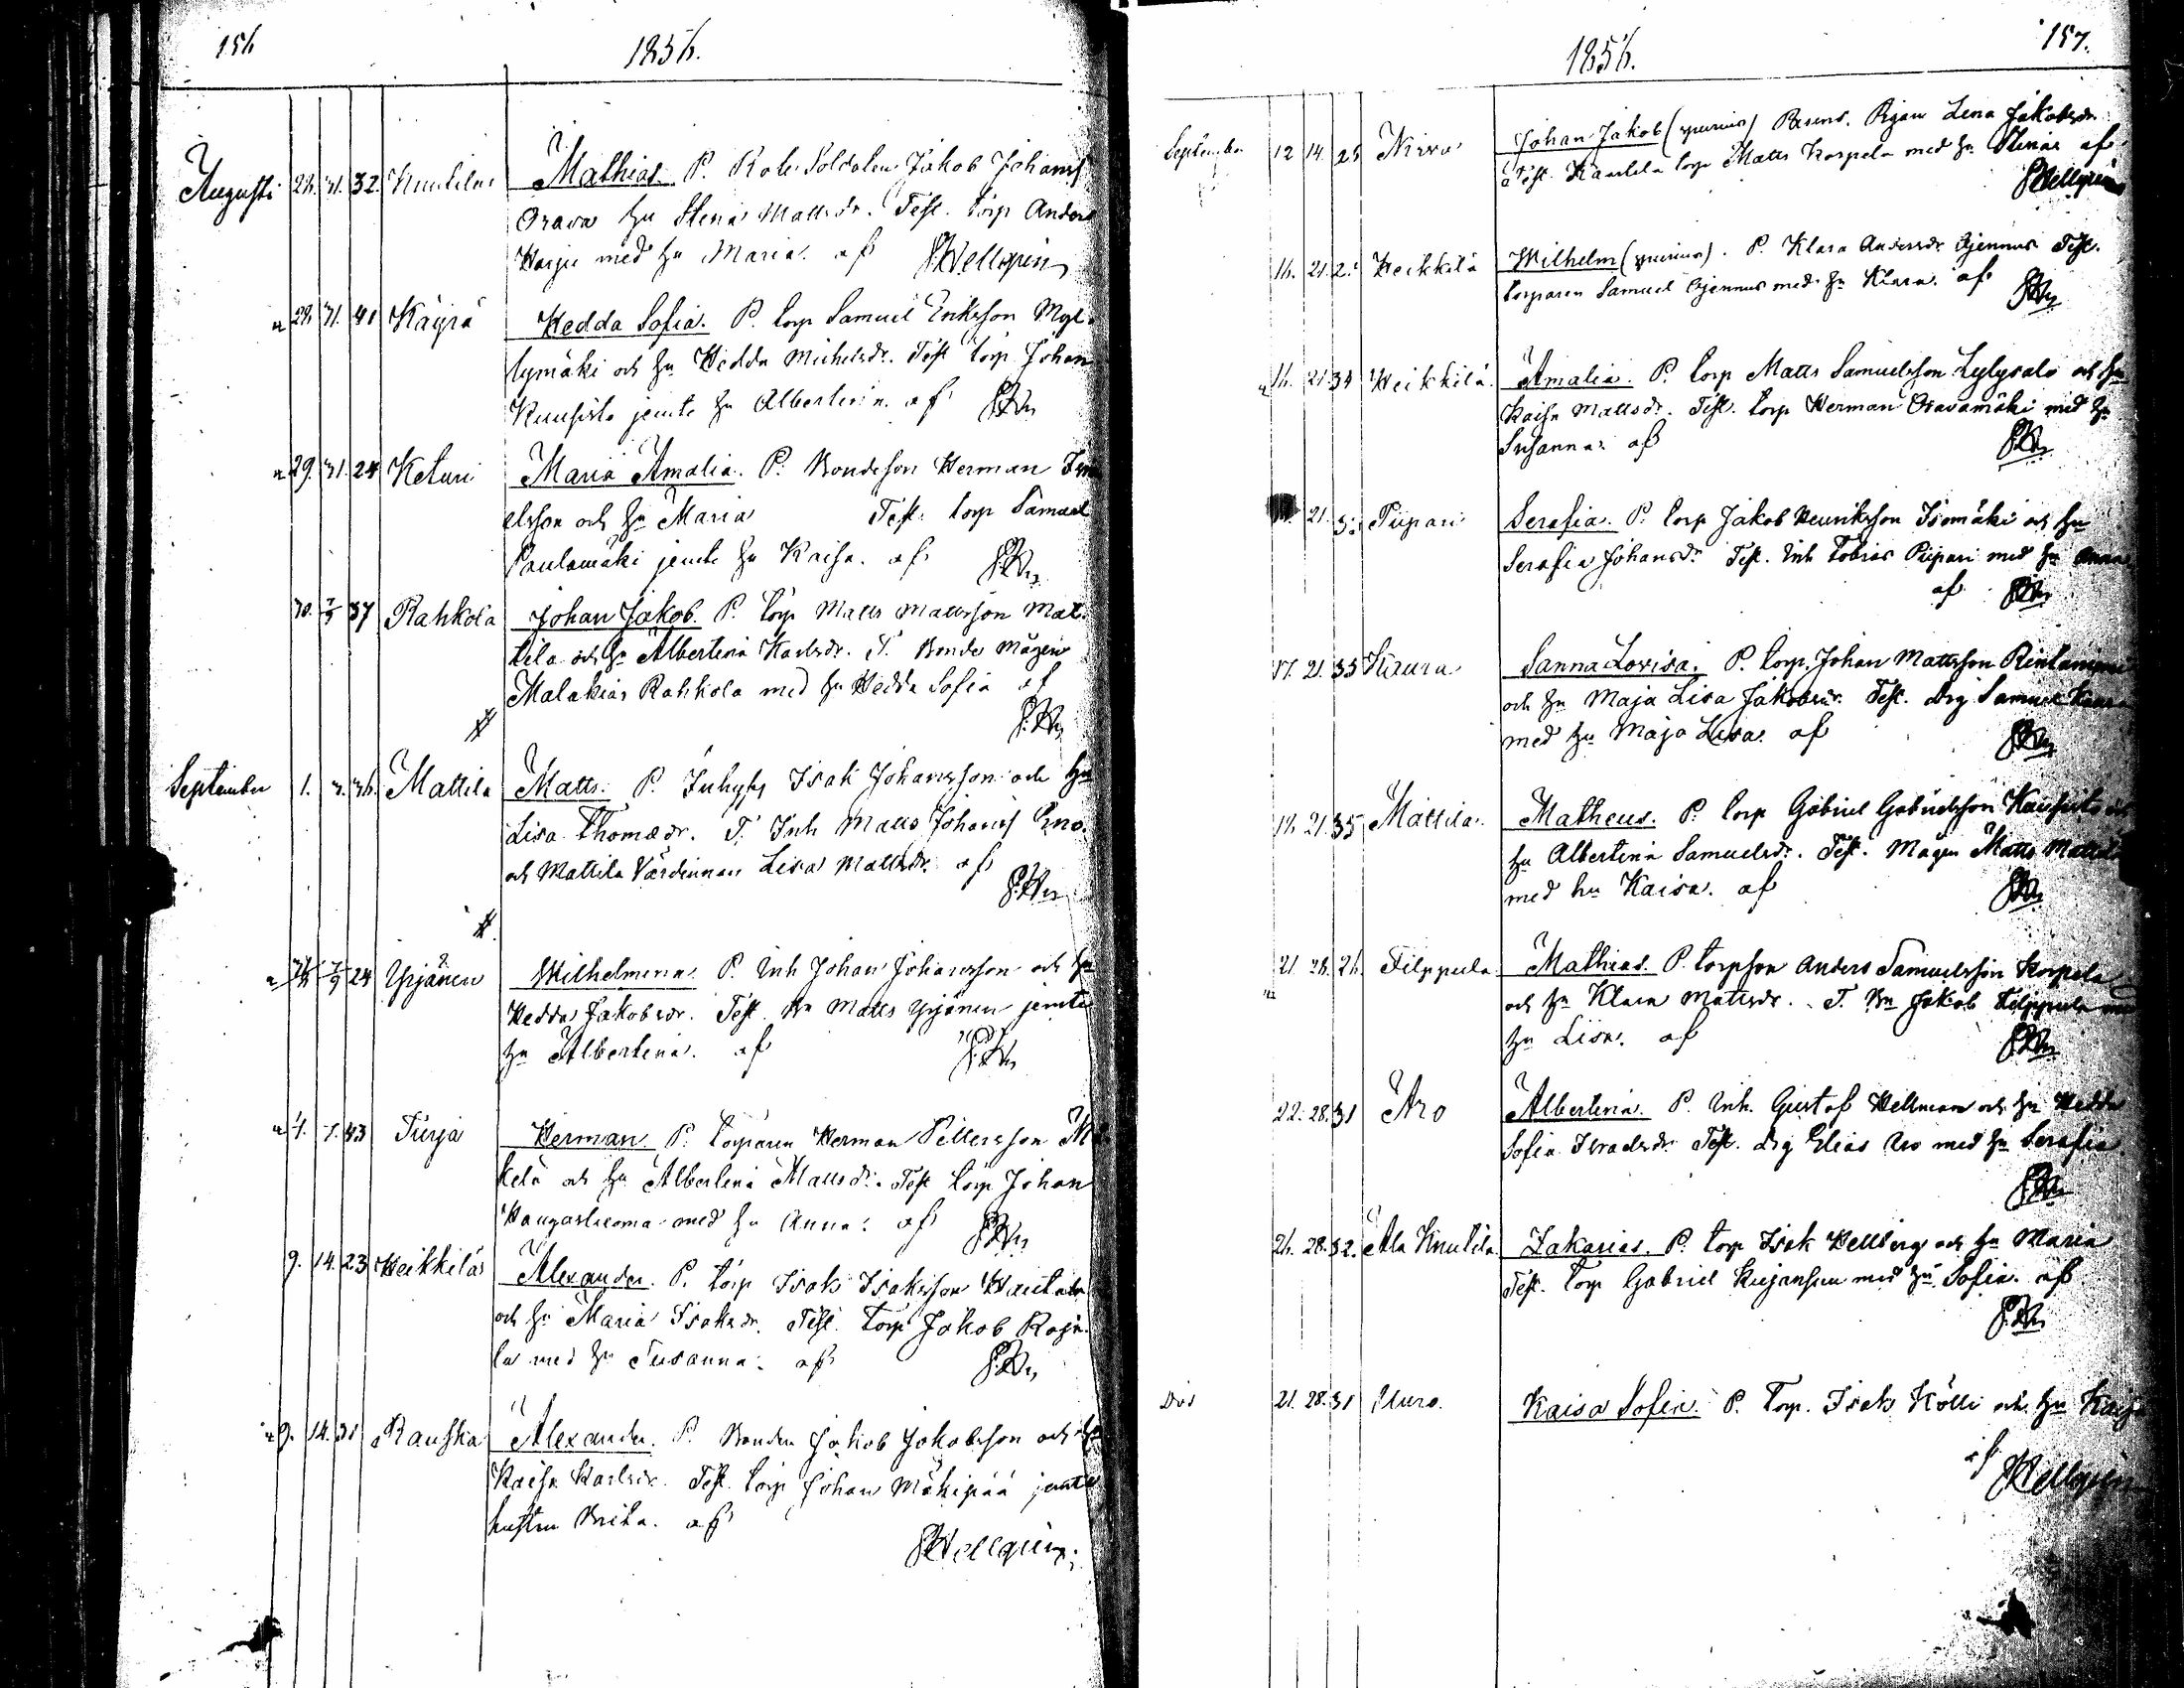 156
1856.
Augusti 28. 31. 32 Knutila Mathias. P. Rote Soldaten Jakob Johans
Orava hu Stena Mattsdr. Test. torp Anders
Harju med hu Maria. af Hellgrén
28. 31. 41 Käyrä Hedda Sofia. P. torp Samuel Eriksson Myl-
lymäki och hu Hedda Michelsdr. Test torp Johan
Kuusisto jemte hu Albertina. af
29. 31. 24 Keturi Maria Amalia. P. Bondeson Herman
elsson och hu Maria Test. torp Samuel
Paulamäki jemte hu Kaisa. af
30. 7/9 37 Rahkola Johan Jakob. P. torp Matts Mattsson Mat-
tila och hu Albertina Karlsdr. T. Bonde mågen
Malakias Rahkola med hu Hedda Sofia af
September 1. 7. 36. Mattila Matts. P. Inhyss Isak Johansson och hu
Lisa Thomasdr. T. Inh Matts Johans Eno.
och Mattila Värdinnan Lisa Mattsdr. af
7/9 24 Yrjänen Wilhelmina. P. Inh Johan Johansson och hu
Hedda Jakobsdr. Test. Bn Matts Yrjänen jemte
hu Albertina. af
4. 7. 43 Turja Herman. P. torparen Herman Pettersson
kelä och hu Albertina Mattsdr. Test torp Johan
Kangasluoma med hu Anna. af
9. 14. 23 Heikkilä Alexander. P. torp Isak Isaksson
och hu Maria Isaksdr. Test. torp Jakob Raja-
la med hu Susanna. af
9. 14. 31 Rauska Alexander. P. Bonden Jakob Jakobsson och hu
Kaisa Karlsdr. Test. torp Johan Mäkipää jemte
hustru Brita. af
Hellgrén
157.
1856.
September 12 14. 25 Nirva Johan Jakob (spurius) Parens. Pigan Lena Jakobsdr
Test. Kankila torp Matts Korpela med hu Stina af
Hellgrén
16. 21. Heikkilä Wilhelm (spurius). P. Klara Andersdr Test.
torparen Samuel med hu Klara. af
16. 21. 34 Heikkilä Amalia. P. torp Matts Samuelsson Lylysalo och hu
Kaisa Mattsdr. Test. torp Herman Oravamäki med hu
Susanna. af
21. Piipari Serafia. P. torp Jakob Henriksson Isomäki och hu
Serafia Johansdr Test. Inh Tobias Piipari med hu Anna
af
17. 21. 35 Kuura Sanna Lovisa. P. torp. Johan Mattsson
och hu Maja Lisa Jakobsdr. Test. drg Samuel Kuura
med hu Maja Lisa. af
18. 21. 35 Mattila Matheus. P. torp Gabriel Gabrielsson Kuusisto och
hu Albertina Samuelsdr. Test. Mågen Matts Mattila
med hu Kaisa. af
21 28. 26. Filppula Mathias. P. torpson Anders Samuelsson Korpela
och hu Klara Mattsdr. T. Bn Jakob Filppula med
hu Lisa. af
22. 28. 31 Aro Albertina. P. Inh. Gustaf Hellman och hu Hedda
Sofia Israelsdr Test. drg Elias Aro med hu Serafia
26. 28. 32. Ala Knutila Zakarias. P. torp Isak Hellberg och hu Maria
Test. torp Gabriel Kujanpää med hu Sofia. af
21. 28. 31 Uuro. Kaisa Sofia. P. Torp. Isak Kölli och hu Kaisa
af
Hellgrén